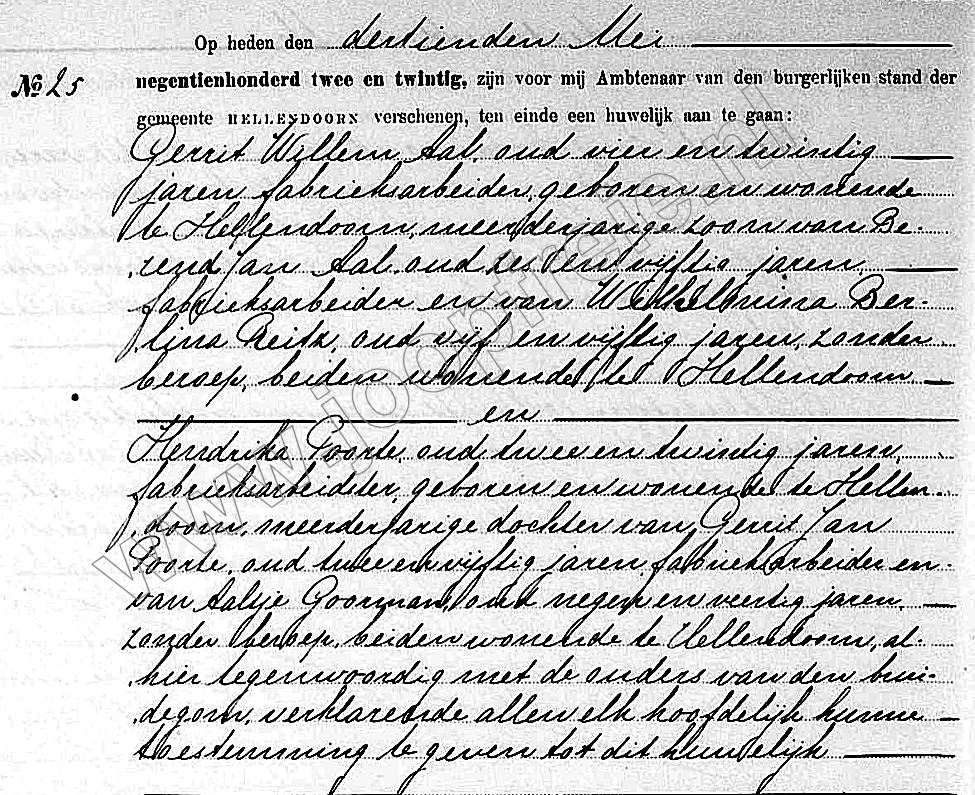 Op heden den dertienden Mei
No 25
negentienhonderd twee en twintig, zijn voor mij Ambtenaar van den burgerlijken stand der
gemeente HELLENDOORN verschenen, ten einde een huwelijk aan te gaan:
Gerrit Willem Aal, oud vier en twintig
jaren, fabrieksarbeider, geboren en wonende
te Hellendoorn, meerderjarige zoon van Be-
rend Jan Aal, oud zes en vijftig jaren,
fabrieksarbeider en van Wilhelmina Ber-
lina Reitz, oud vijf en vijftig jaren, zonder
beroep, beiden wonende te Hellendoorn
en
Hendrika Poorte, oud twee en twintig jaren,
fabrieksarbeidster, geboren en wonende te Hellen-
doorn, meerderjarige dochter van Gerrit Jan
Poorte, oud twee en vijftig jaren, fabrieksarbeider en
van Aaltje Goorman, oud negen en veertig jaren,
zonder beroep, beiden wonende te Hellendoorn, al-
hier tegenwoordig met de ouders van den brui-
degom, verklarende allen elk hoofdelijk hunne
toestemming te geven tot dit huwelijk
www.jooptreien.nl